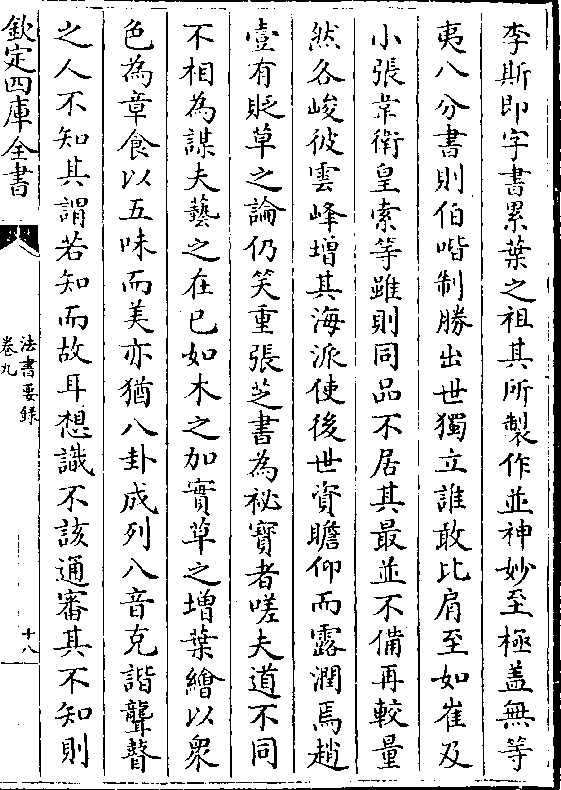 李斯即字書累葉之祖其所製作並神妙至極盖無等
夷八分書則伯喈制勝出世獨立誰敢比肩至如崔及
小張韋衛皇索等雖則同品不居其最並不備再較量
然各峻彼雲峰增其海派使後世資瞻仰而露潤焉趙
壹有貶草之論仍笑重張芝書為袐寳者嗟夫道不同
不相為謀夫藝之在已如木之加實草之增葉繪以衆
色為章食以五味而美亦猶八卦成列八音克諧聾瞽
之人不知其謂若知而故耳想識不該通審其不知則
欽定四庫全書
法書要録
卷九
十八